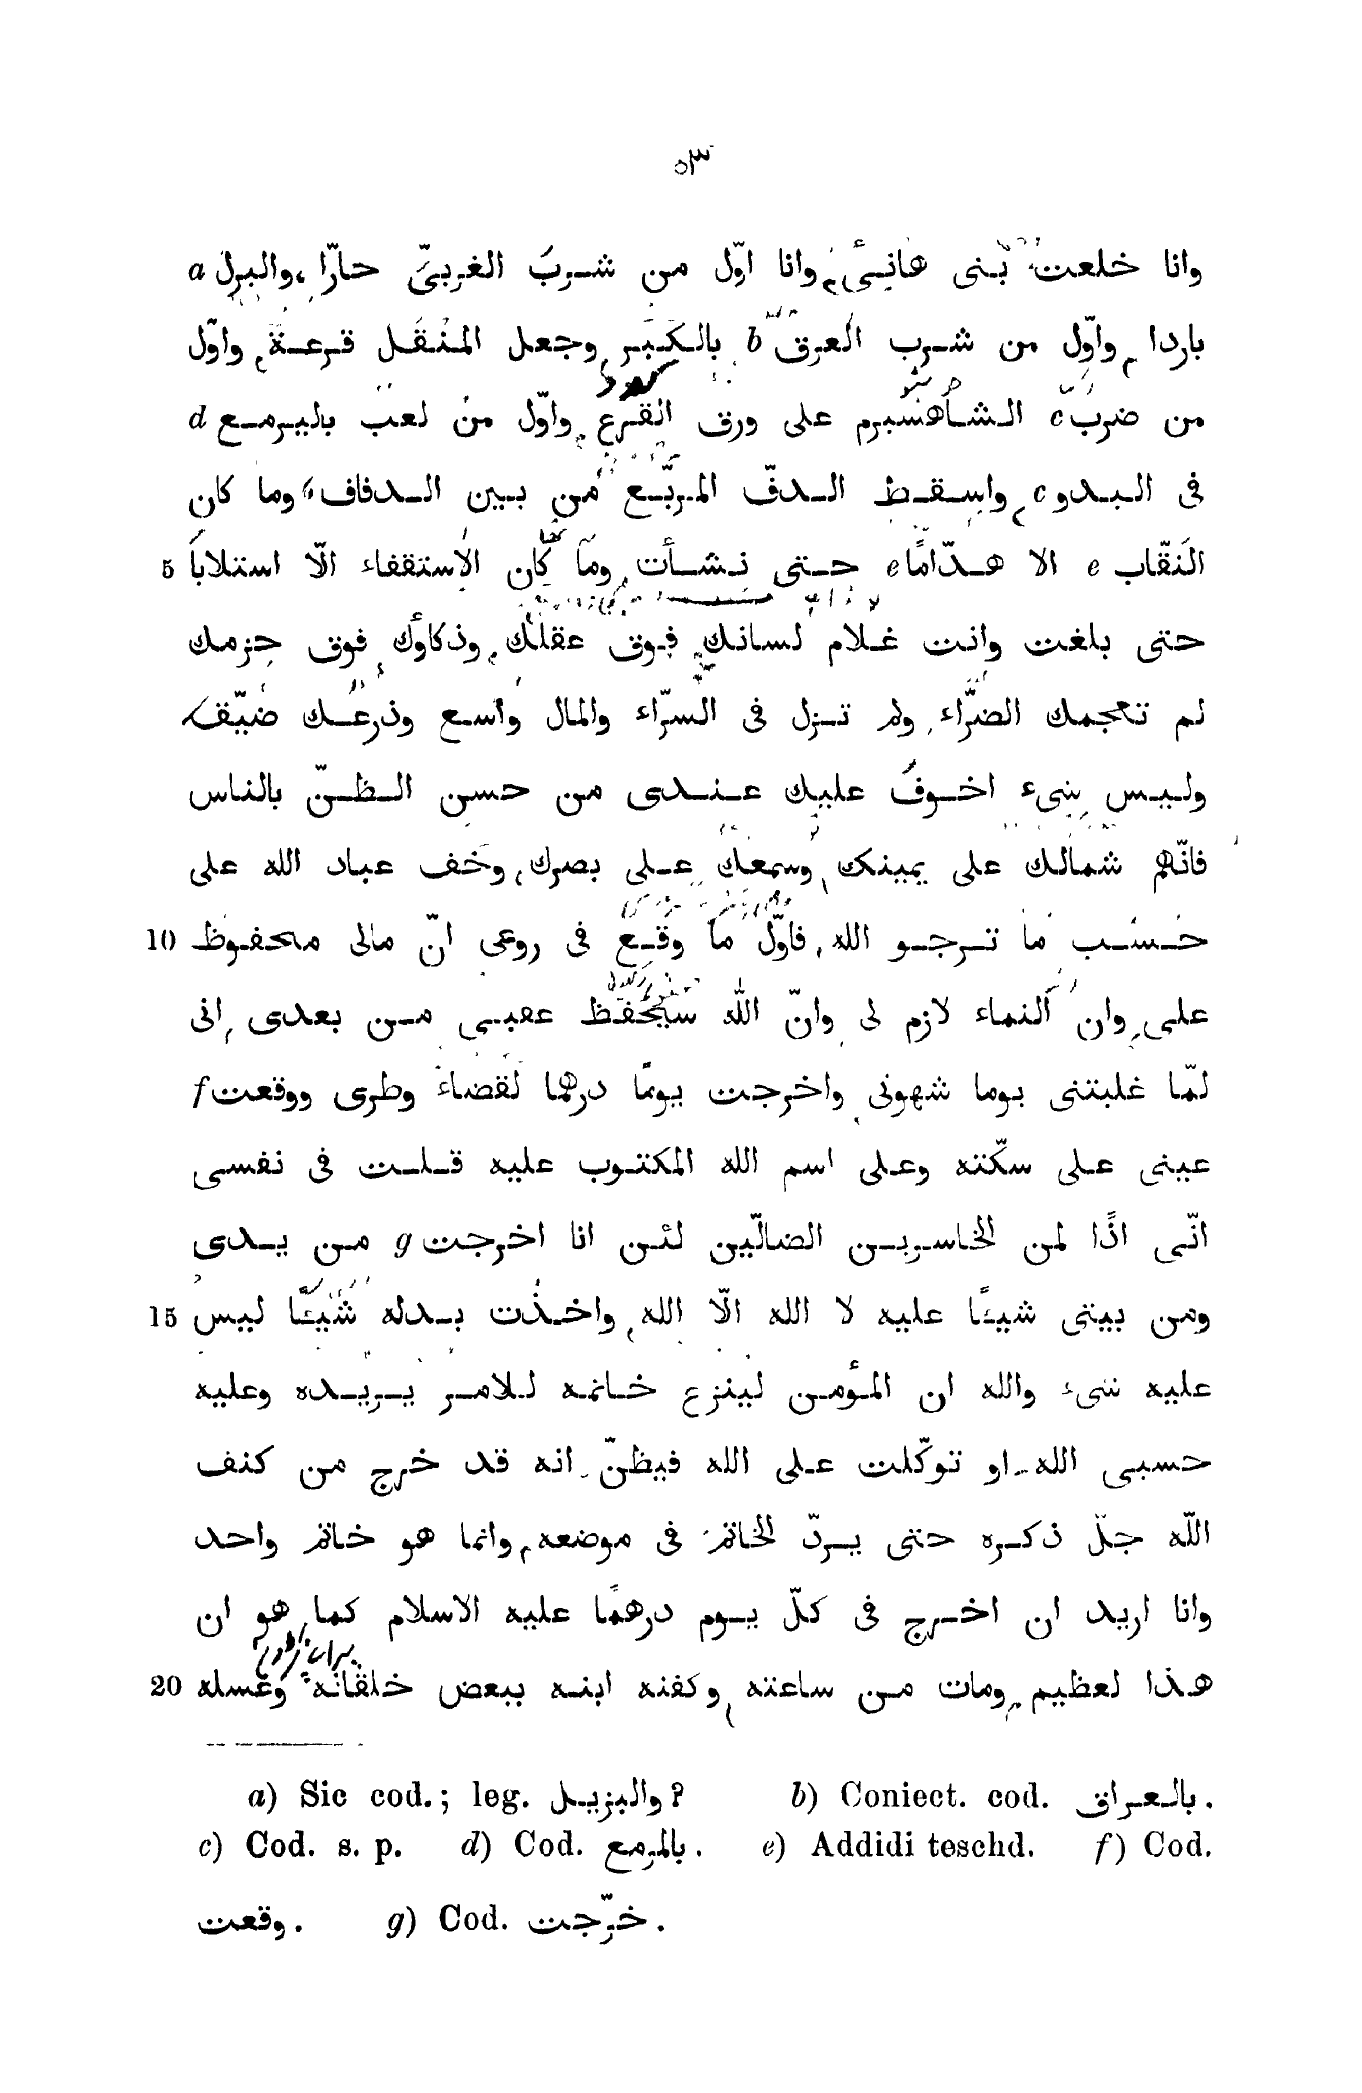 ٥٣
وانا خلعت بنى هانئ وانا اوّل من شرب الغربىّ حارّا والبزل a
باردا واوّل من شرب العرق b بالكبر وجعل المنقل قرعة واوّل
من ضرب c الشاهسبرم على ورق القرع واوّل من لعب باليرمع d
فى البدو c واسقط الدفّ المربّع من بين الدفاف وما كان
5 النقّاب e الا هدّامًا e حتى نشأت وما كان الاستقفاء الّا استلابا
حتى بلغت وانت غلام لسانك فوق عقلك وذكاؤك فوق حزمك
لم تعجمك الضرّاء ولم تزل فى السرّاء والمال واسع وذرعك ضيّق
وليس شىء اخوف عليك عندى من حسن الظنّ بالناس
فانّهم شمالك على يمينك وسمعك على بصرك وخف عباد الله على
10 حسب ما ترجو الله فاوّل ما وقع فى روعى انّ مالى محفوظ
على وان النماء لازم لى وانّ الله سيحفظ عقبى من بعدى انى
لمّا غلبتنى يوما شهوتى واخرجت يومًا درهما لقضاء وطرى ووقعت f
عينى على سكّته وعلى اسم الله المكتوب عليه قلت فى نفسى
انّى اذًا لمن الخاسرين الضالّين لئن انا اخرجت g من يدى
15 ومن بيتى شيئًا عليه لا اله الّا الله واخذت بدله شيئًا ليس
عليه شىء والله ان المؤمن لينزع خاتمه للامر يريده وعليه
حسبى الله او توكّلت على الله فيظنّ انه قد خرج من كنف
اللّه جلّ ذكره حتى يردّ الخاتم فى موضعه وانما هو خاتم واحد
وانا اريد ان اخرج فى كلّ يوم درهمًا عليه الاسلام كما هو ان
20 هذا لعظيم ومات من ساعته وكفنه ابنه ببعض خلقانه وغسله
a) Sic cod.; leg. والبزيل? b) Coniect. cod. بالعراق.
c) Cod. s. p. d) Cod. بالمرمع. e) Addidi teschd. f) Cod.
وقعت. g) Cod. خرّجت.